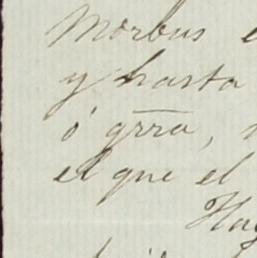 Morbus
y hasta
ó grra,
el que el
Hay